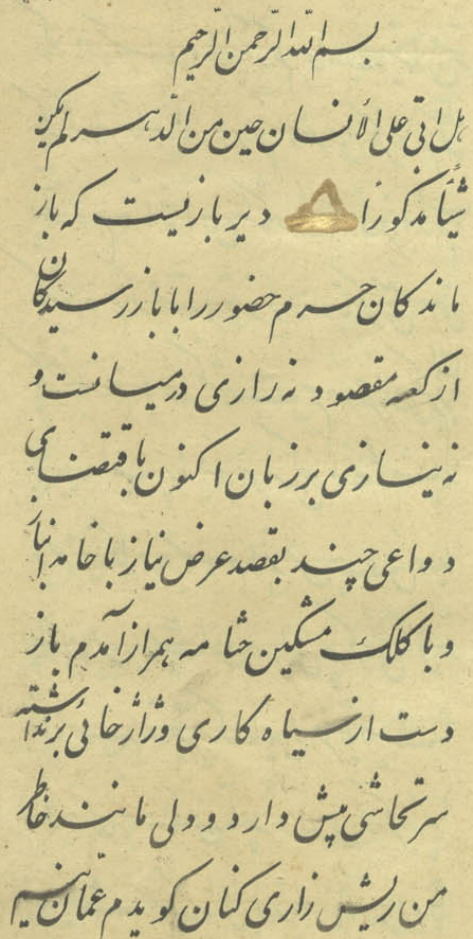 بسم الله الرحمن الرحیم
هل اتی علی الأنسان حین من الدهر لم یکن
شیئا مذکورا دیر بازیست که باز
ماندکان حرم حضور را با باز رسیدکان
از کعبه مقصود نه رازی در میانست و
نه نیازی بر زبان اکنون باقتضای
دواعی چند بقصد عرض نیاز با خامه انباز
و با کلک مشکین ختامه همراز آمدم باز
دست از سیاه کاری و ژاژخائی برنداشته
سر تحاشی پیش دارد و دلی مانند خاطر
من ریش زاری کنان کویدم